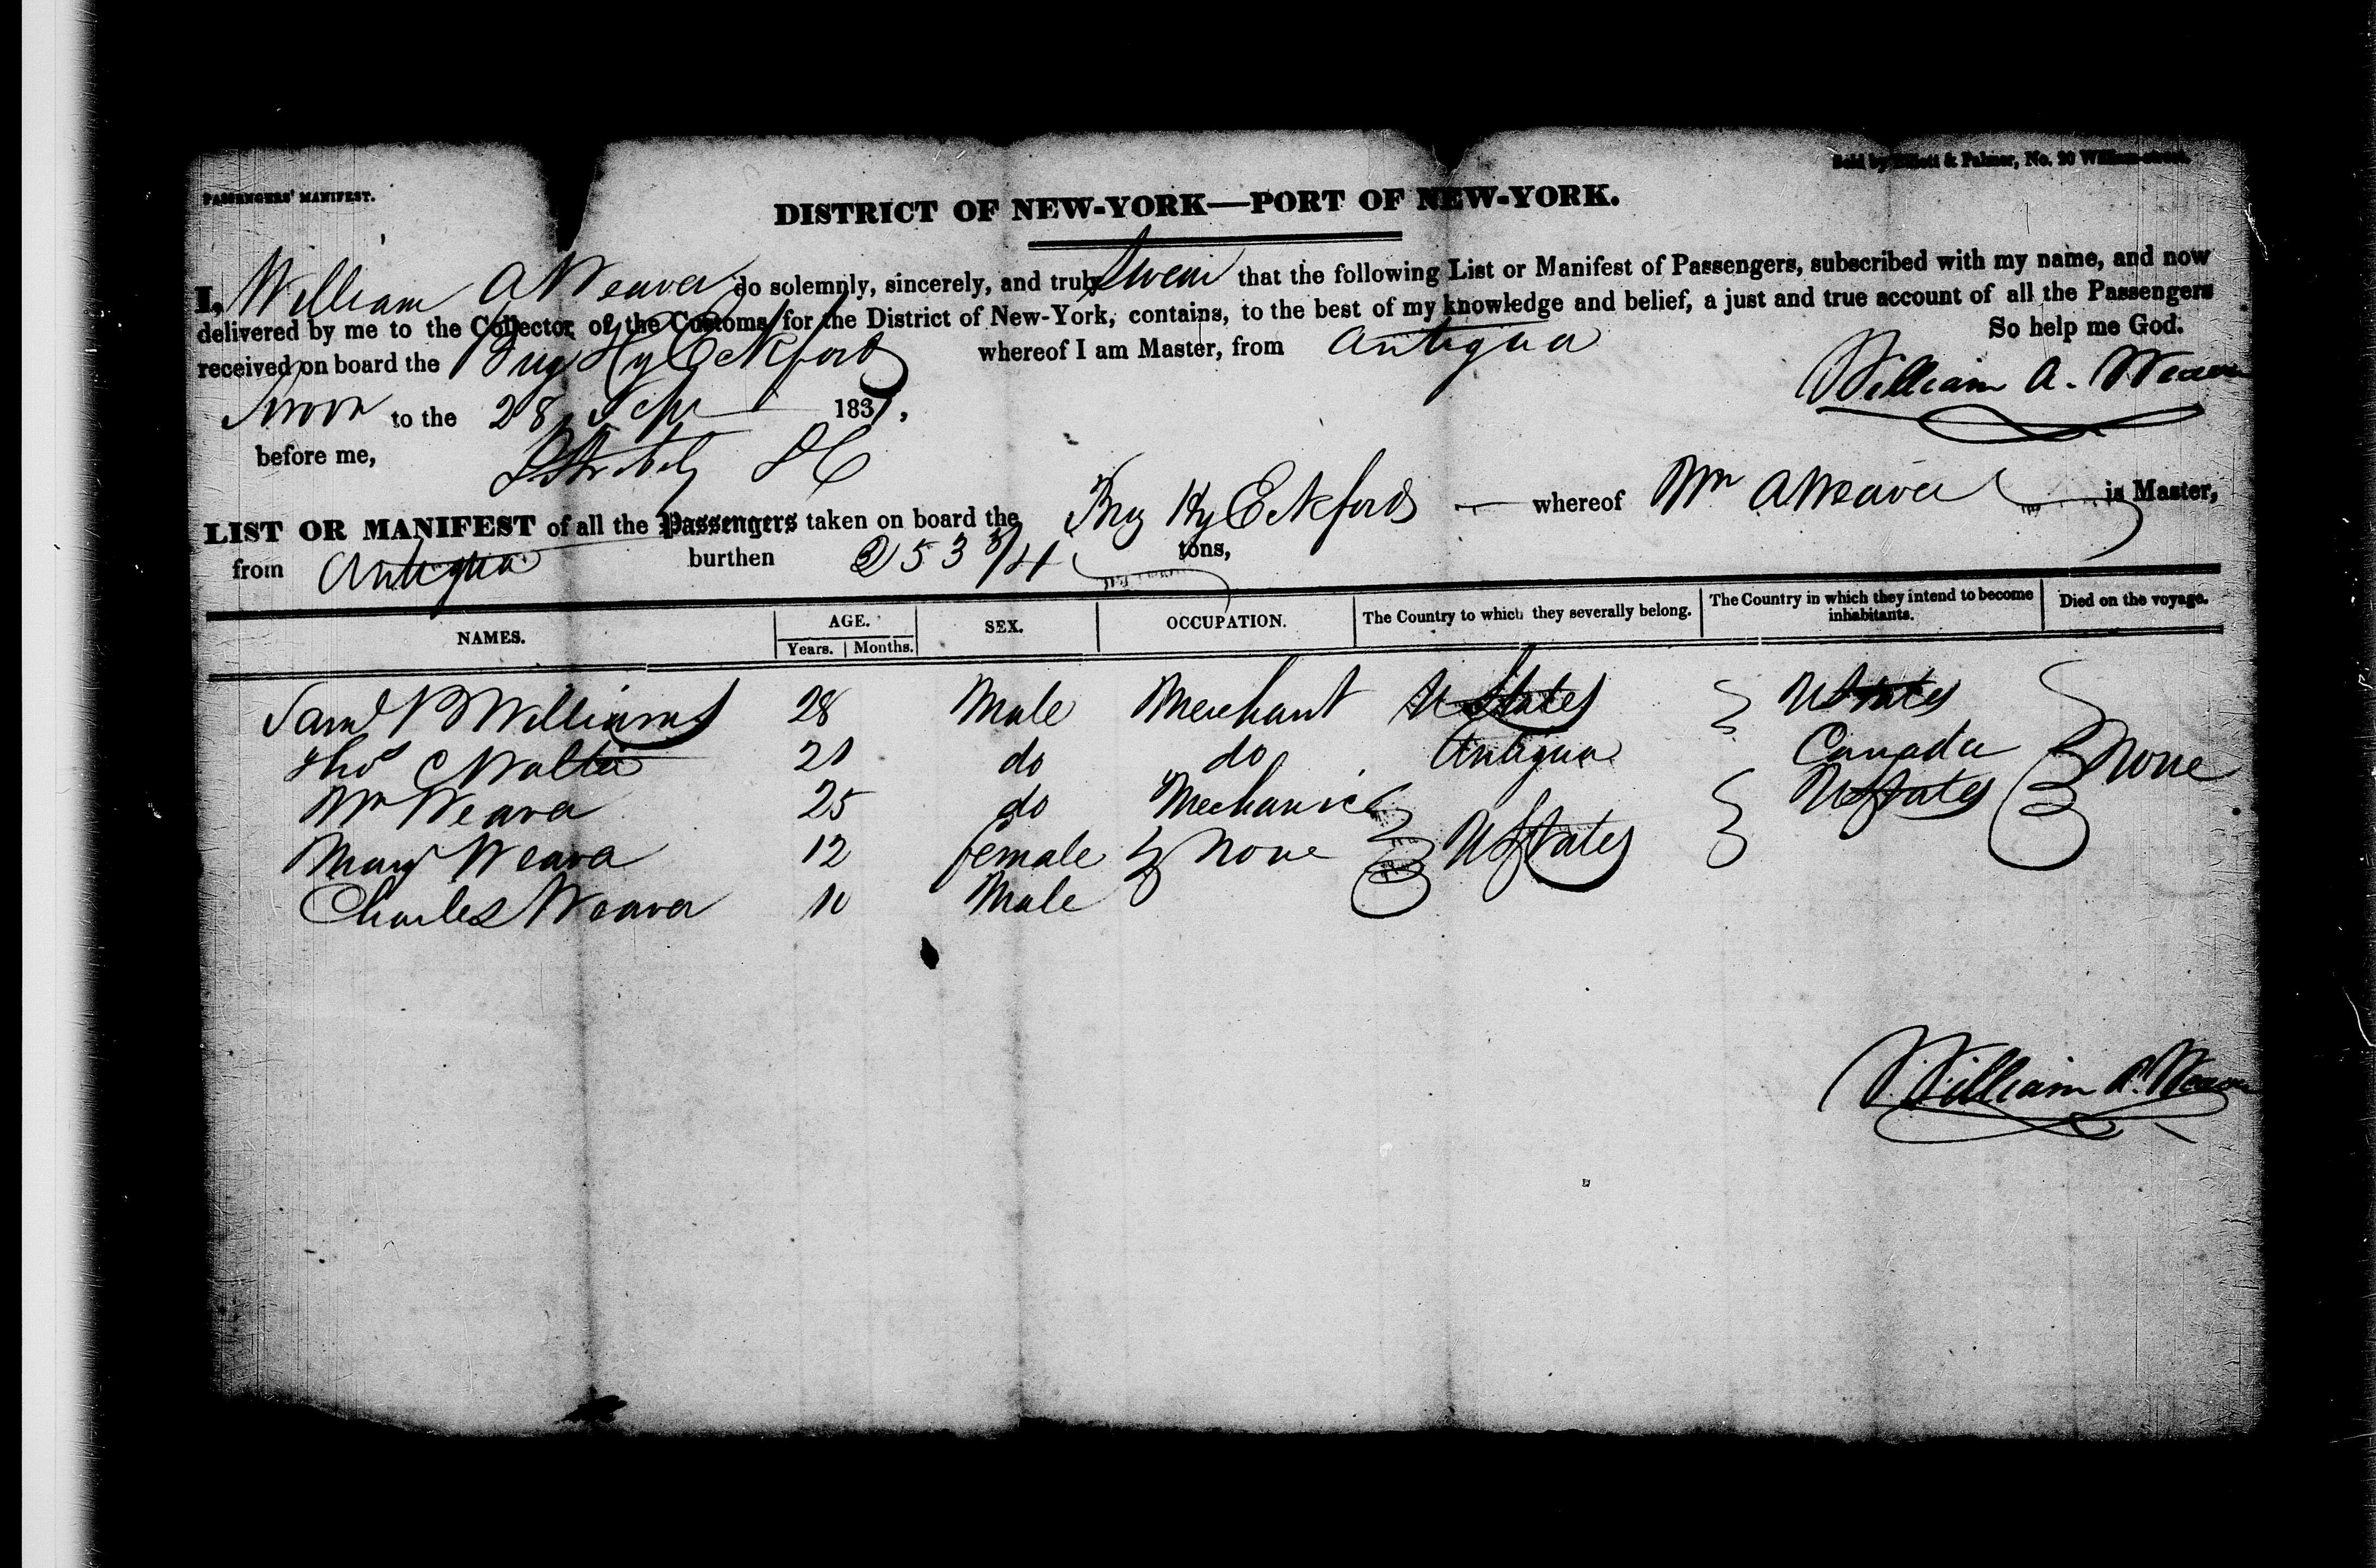 PASSENGERS' MANIFEST.
Sold by Elliott & Palmer, No. 20 William-street.
DISTRICT OF NEW-YORK—PORT OF NEW-YORK.
I, William A Weaver do solemnly, sincerely, and truly Swear that the following List or Manifest of Passengers, subscribed with my name, and now
delivered by me to the Collector of the Customs for the District of New-York, contains, to the best of my knowledge and belief, a just and true account of all the Passengers
received on board the Brig Hy Eckford whereof I am Master, from Antigua So help me God.
Sworn to the 28 Sepr 183 William A. Weaver
before me,
LIST OR MANIFEST of all the Passengers taken on board the Brig Hy Eckford — whereof Wm A Weaver is Master,
from Antigua burthen 253 3/4 tons,
NAMES. AGE. SEX. OCCUPATION. The Country to which they severally belong. The Country in which they intend to become inhabitants. Died on the voyage.
Years. Months.
Saml B Williams 28 Male Merchant U States U States
Thos C Walter 21 do do Antigua Canada None
Wm Weaver 25 do Mechanic U States
Mary Weaver 12 female None U States
Charles Weaver 10 Male
William A. Weaver